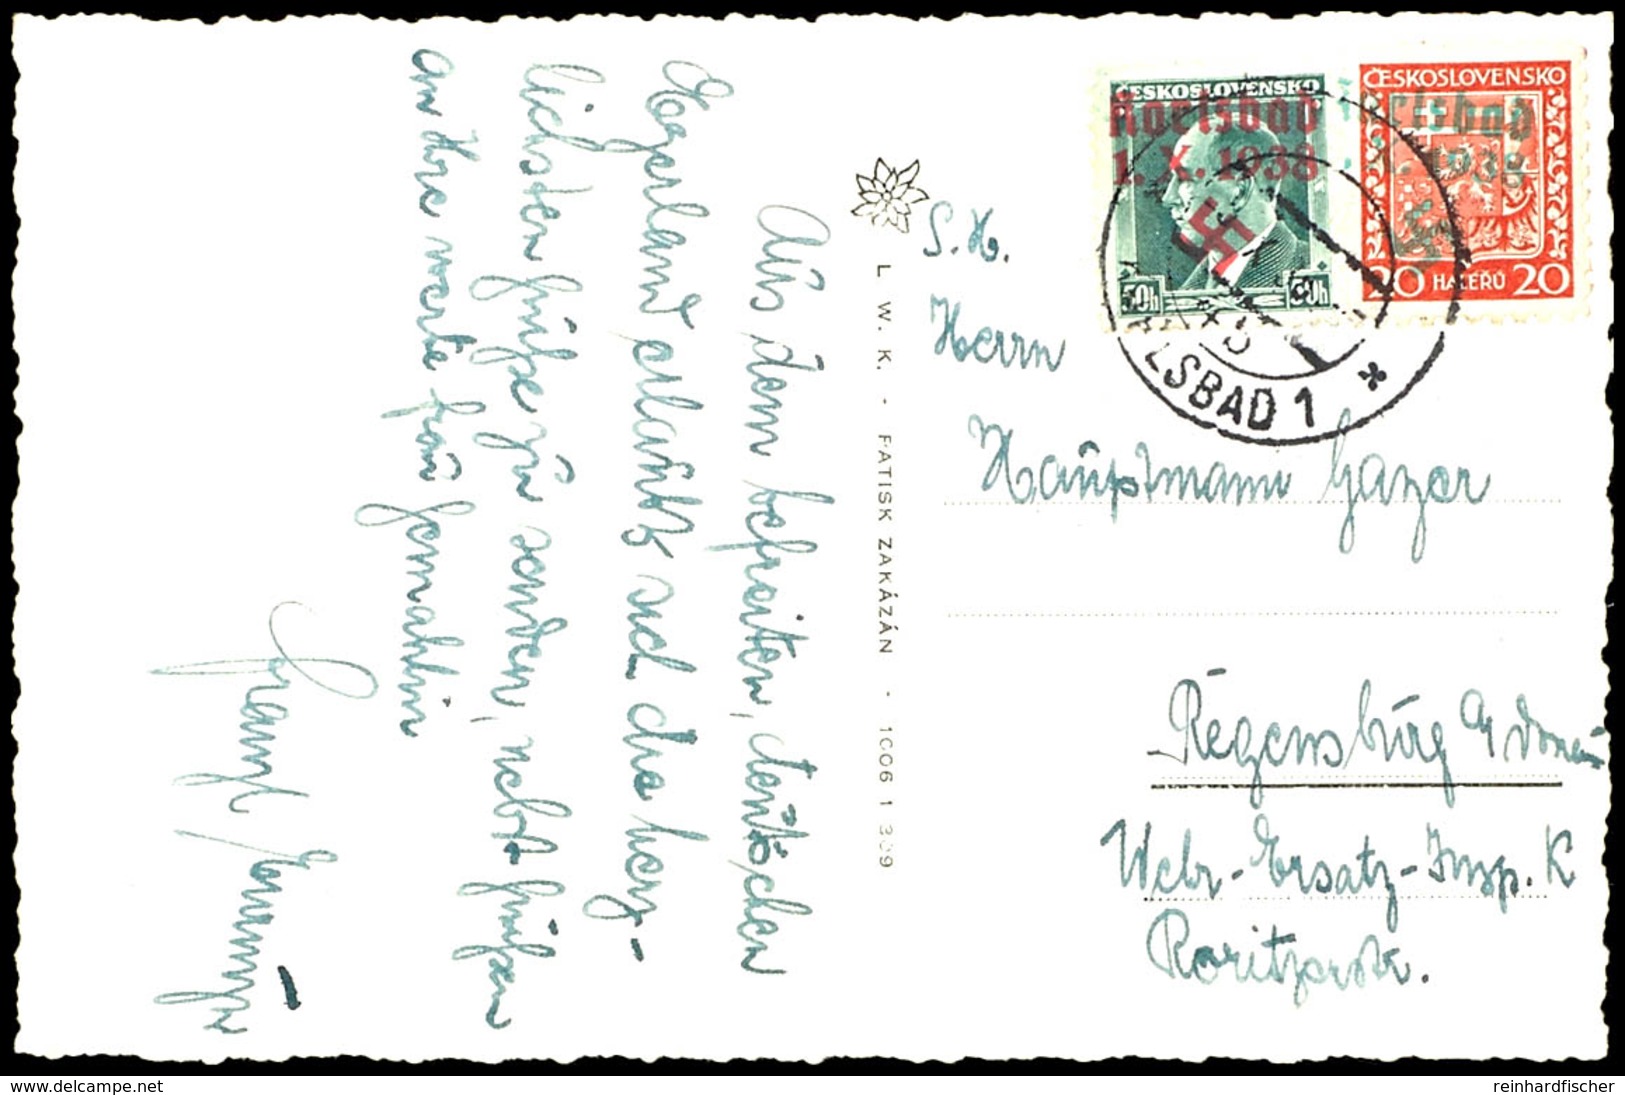 Aus dem befreiten, deutschen
Egerland erlaubt sich die herz-
lichsten Grüße zu senden, nebst Grüßen
an Ihre werte Frau Gemahlin
L. W. K. - PATISK ZAKÁZÁN - 1006 1309
ČESKOSLOVENSKO
Karlsbad
1. X. 1938
50h 50h
ČESKOSLOVENSKO
Karlsbad
1. X. 1938
20 HALÉŘŮ 20
KARLSBAD 1 *
S. H.
Herrn
Hauptmann
Regensburg a/Donau
Wehr-Ersatz-Insp. K
Roritzerstr.
www.delcampe.net
reinhardfischer